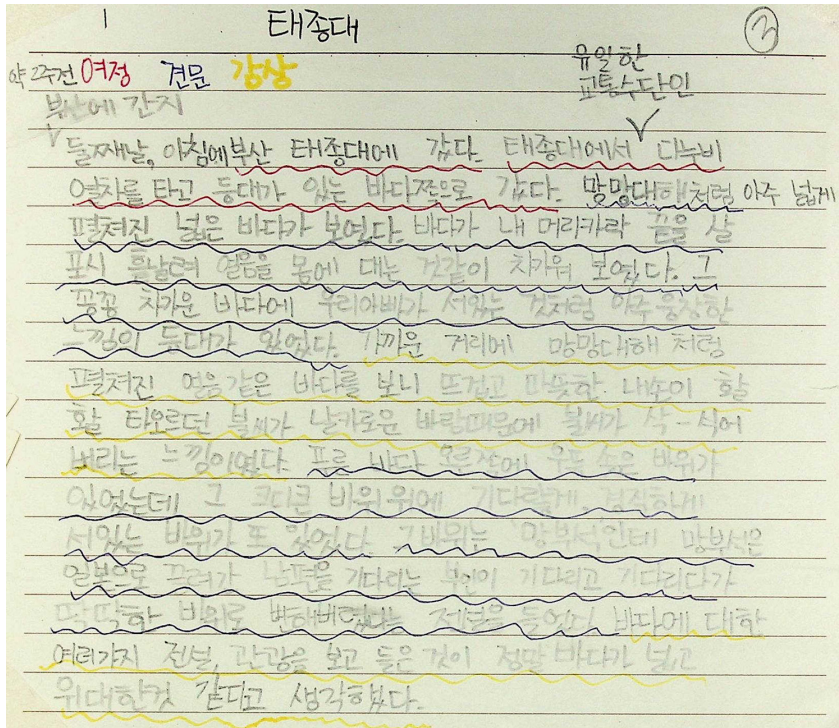 1 태종대 ③
약 2주전 여정 견문 감상 유일한
교통수단인
부산에 간지
둘째날, 아침에 부산 태종대에 갔다. 태종대에서 다누비
열차를 타고 등대가 있는 바다쪽으로 갔다. 망망대해처럼 아주 넓게
펼쳐진 넓은 바다가 보였다. 바다가 내 머리카락 끝을 살
포시 흩날려 얼음을 몸에 대는 것같이 차가워 보였다. 그
꽁꽁 차가운 바다에 우리아빠가 서있는 것처럼 아주 웅장한
느낌이 등대가 있었다. 가까운 거리에 망망대해 처럼
펼쳐진 얼음같은 바다를 보니 뜨겁고 따뜻한 내손이 활
활 타오르던 불씨가 날카로운 바람때문에 불씨가 삭-식어
버리는 느낌이였다. 푸른 바다 오른쪽에 우뚝 솟은 바위가
있었는데 그 크디큰 바위 위에 기다랗게, 경직하게
서있는 바위가 또 있었다. 그바위는 '망부석'인데 망부석은
일본으로 끌려가 남편을 기다리는 부인이 기다리고 기다리다가
딱딱한 바위로 변해버렸다는 전설을 들었다. 바다에 대한
여러가지 전설, 관광을 보고 들은 것이 정말 바다가 넓고
위대한것 같다고 생각했다.